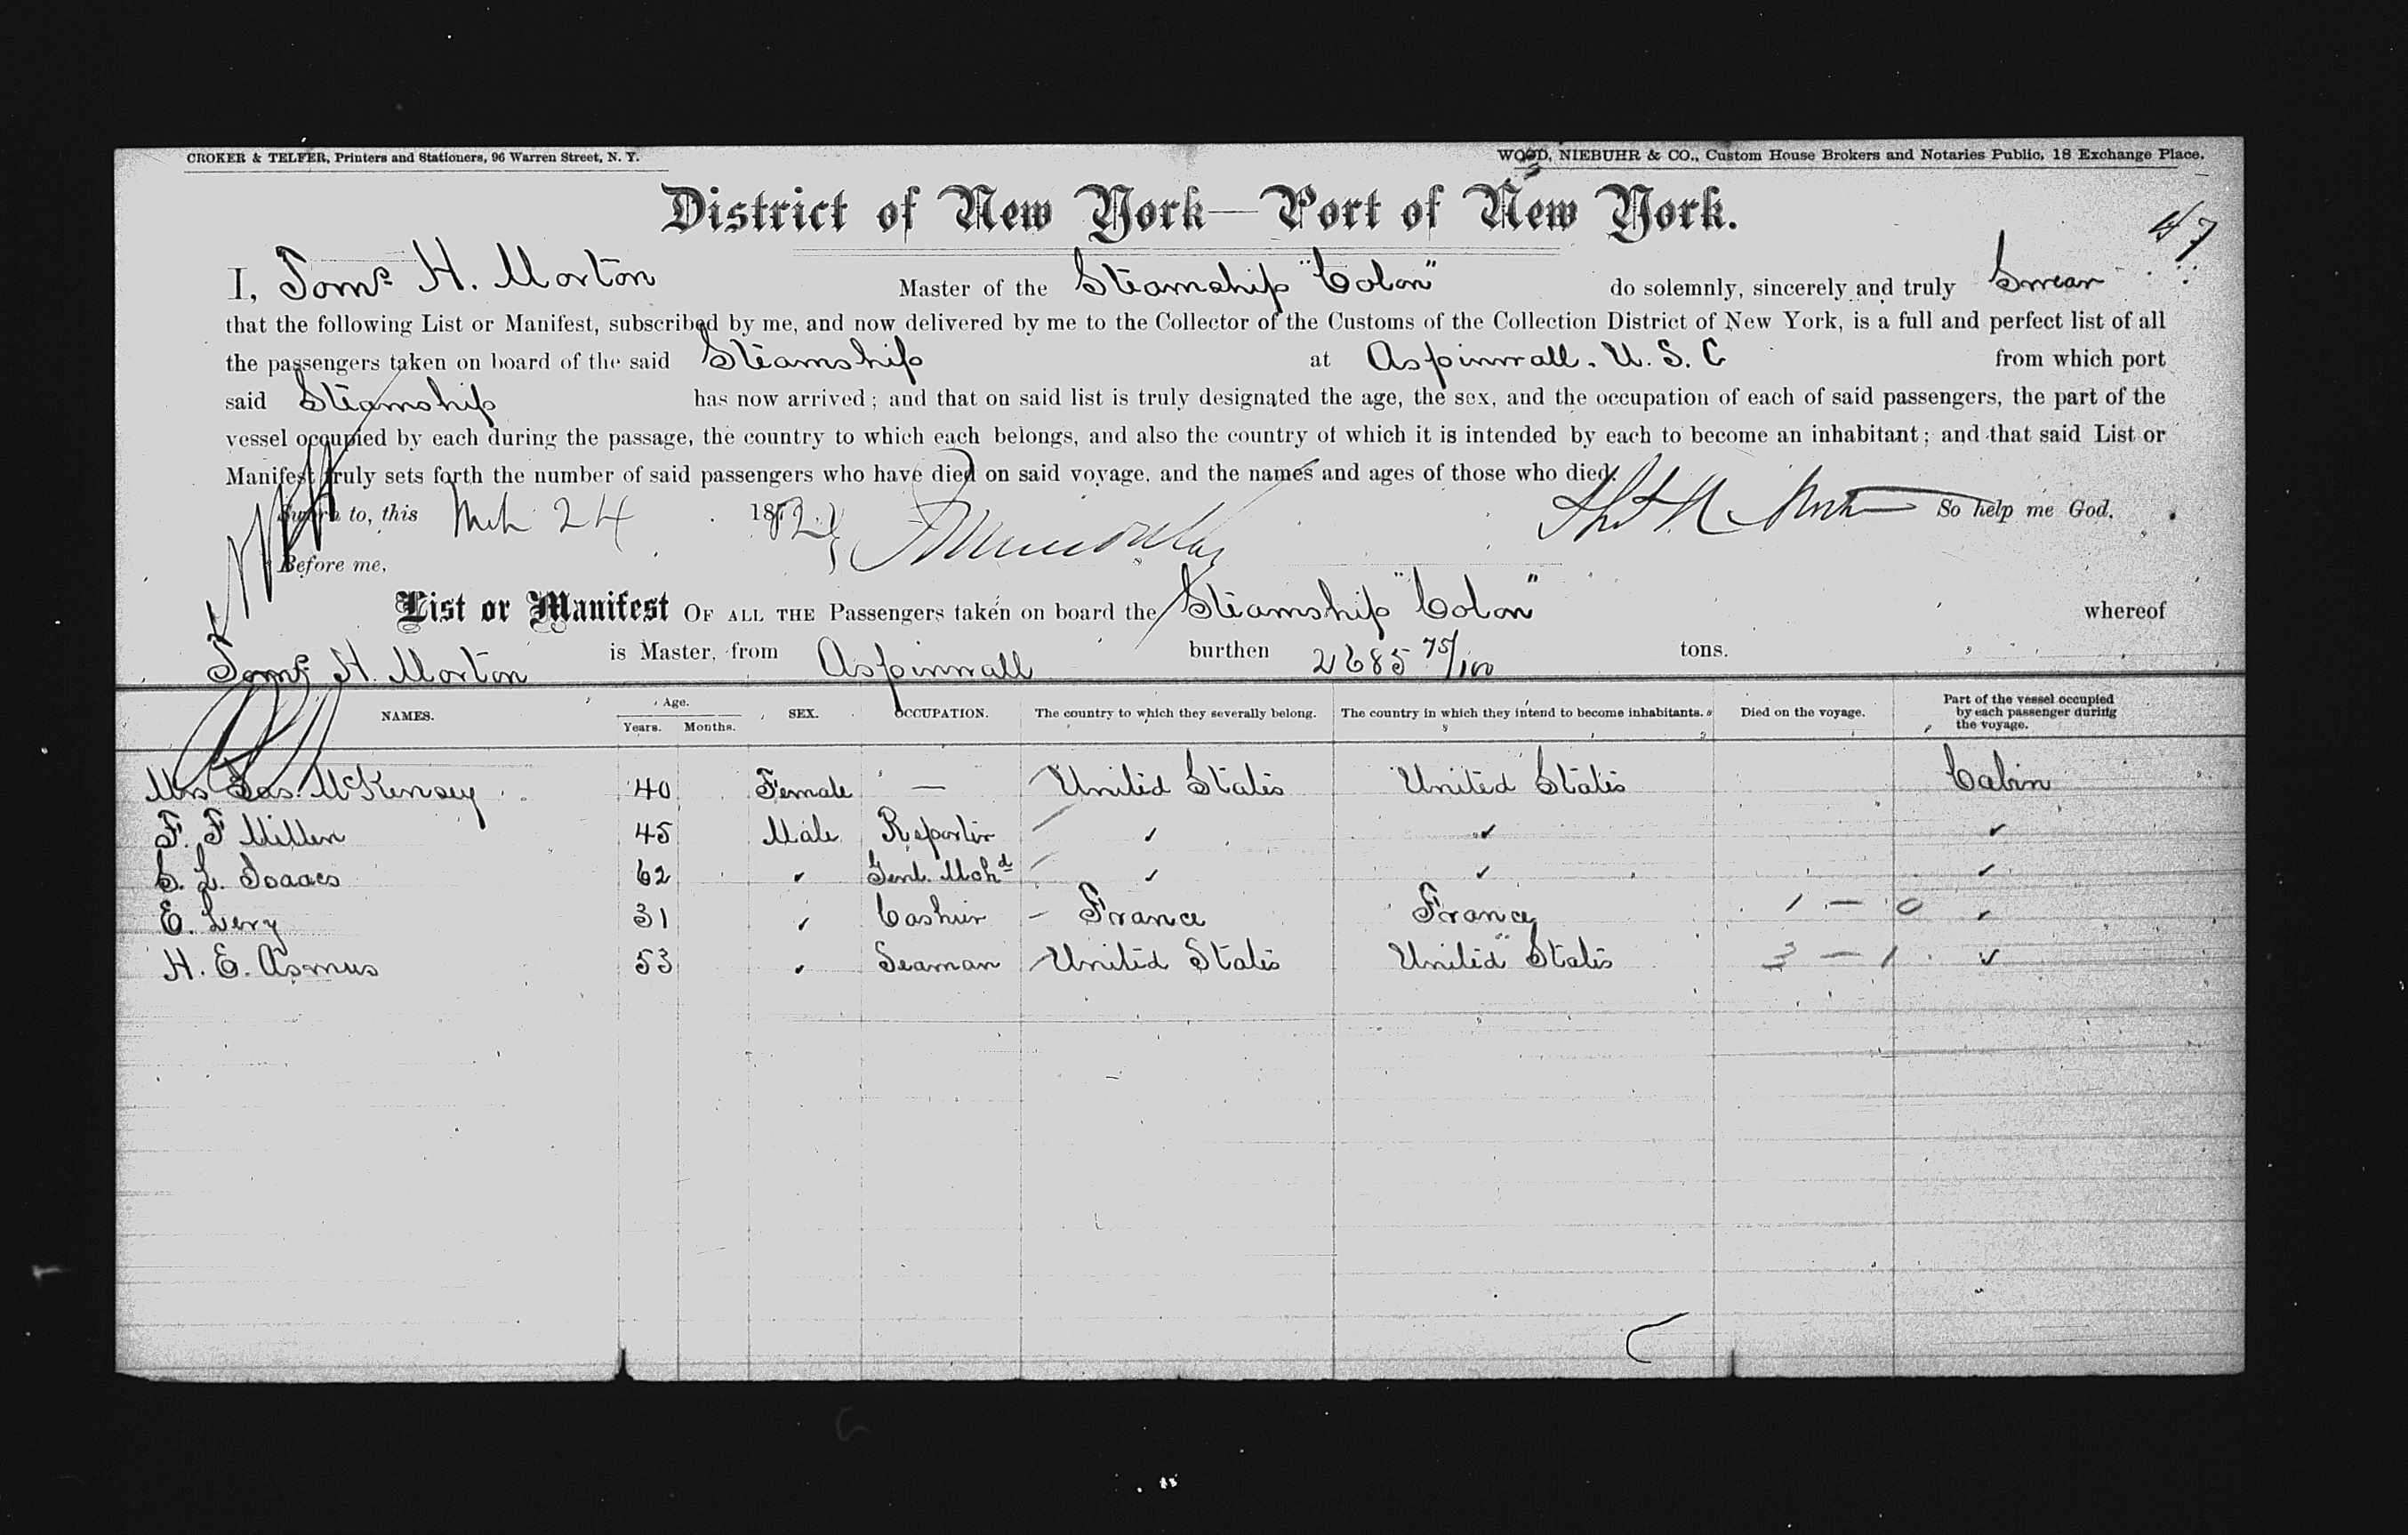 CROKER & TELFER, Printers and Stationers, 96 Warren Street, N. Y.
WOOD, NIEBUHR & CO., Custom House Brokers and Notaries Public, 18 Exchange Place.
District of New York—Port of New York.
47
I, Jam.s H. Morton Master of the Steamship "Colon" do solemnly, sincerely and truly Swear
that the following List or Manifest, subscribed by me, and now delivered by me to the Collector of the Customs of the Collection District of New York, is a full and perfect list of all
the passengers taken on board of the said Steamship at Aspinwall. U. S. C from which port
said Steamship has now arrived; and that on said list is truly designated the age, the sex, and the occupation of each of said passengers, the part of the
vessel occupied by each during the passage, the country to which each belongs, and also the country of which it is intended by each to become an inhabitant; and that said List or
Manifest truly sets forth the number of said passengers who have died on said voyage, and the names and ages of those who died.
Sworn to, this Mch 24 1882 So help me God.
Before me,
List or Manifest OF ALL THE Passengers taken on board the Steamship "Colon" whereof
Jam.s H. Morton is Master, from Aspinwall burthen 2685 75/100 tons.
NAMES. Age. Years. Months. SEX. OCCUPATION. The country to which they severally belong. The country in which they intend to become inhabitants. Died on the voyage. Part of the vessel occupied by each passenger during the voyage.
Mrs Jas. McKensey 40 Female — United States United States Cabin
F. F Millen 45 Male Reporter ✓ ✓ ✓
S. L. Isaacs 62 ✓ Genl. Mchd ✓ ✓ ✓
E. Levy 31 ✓ Cashier France France 1 — 0 ✓
H. E. Asmus 53 ✓ Seaman United States United States 3 — 1 ✓